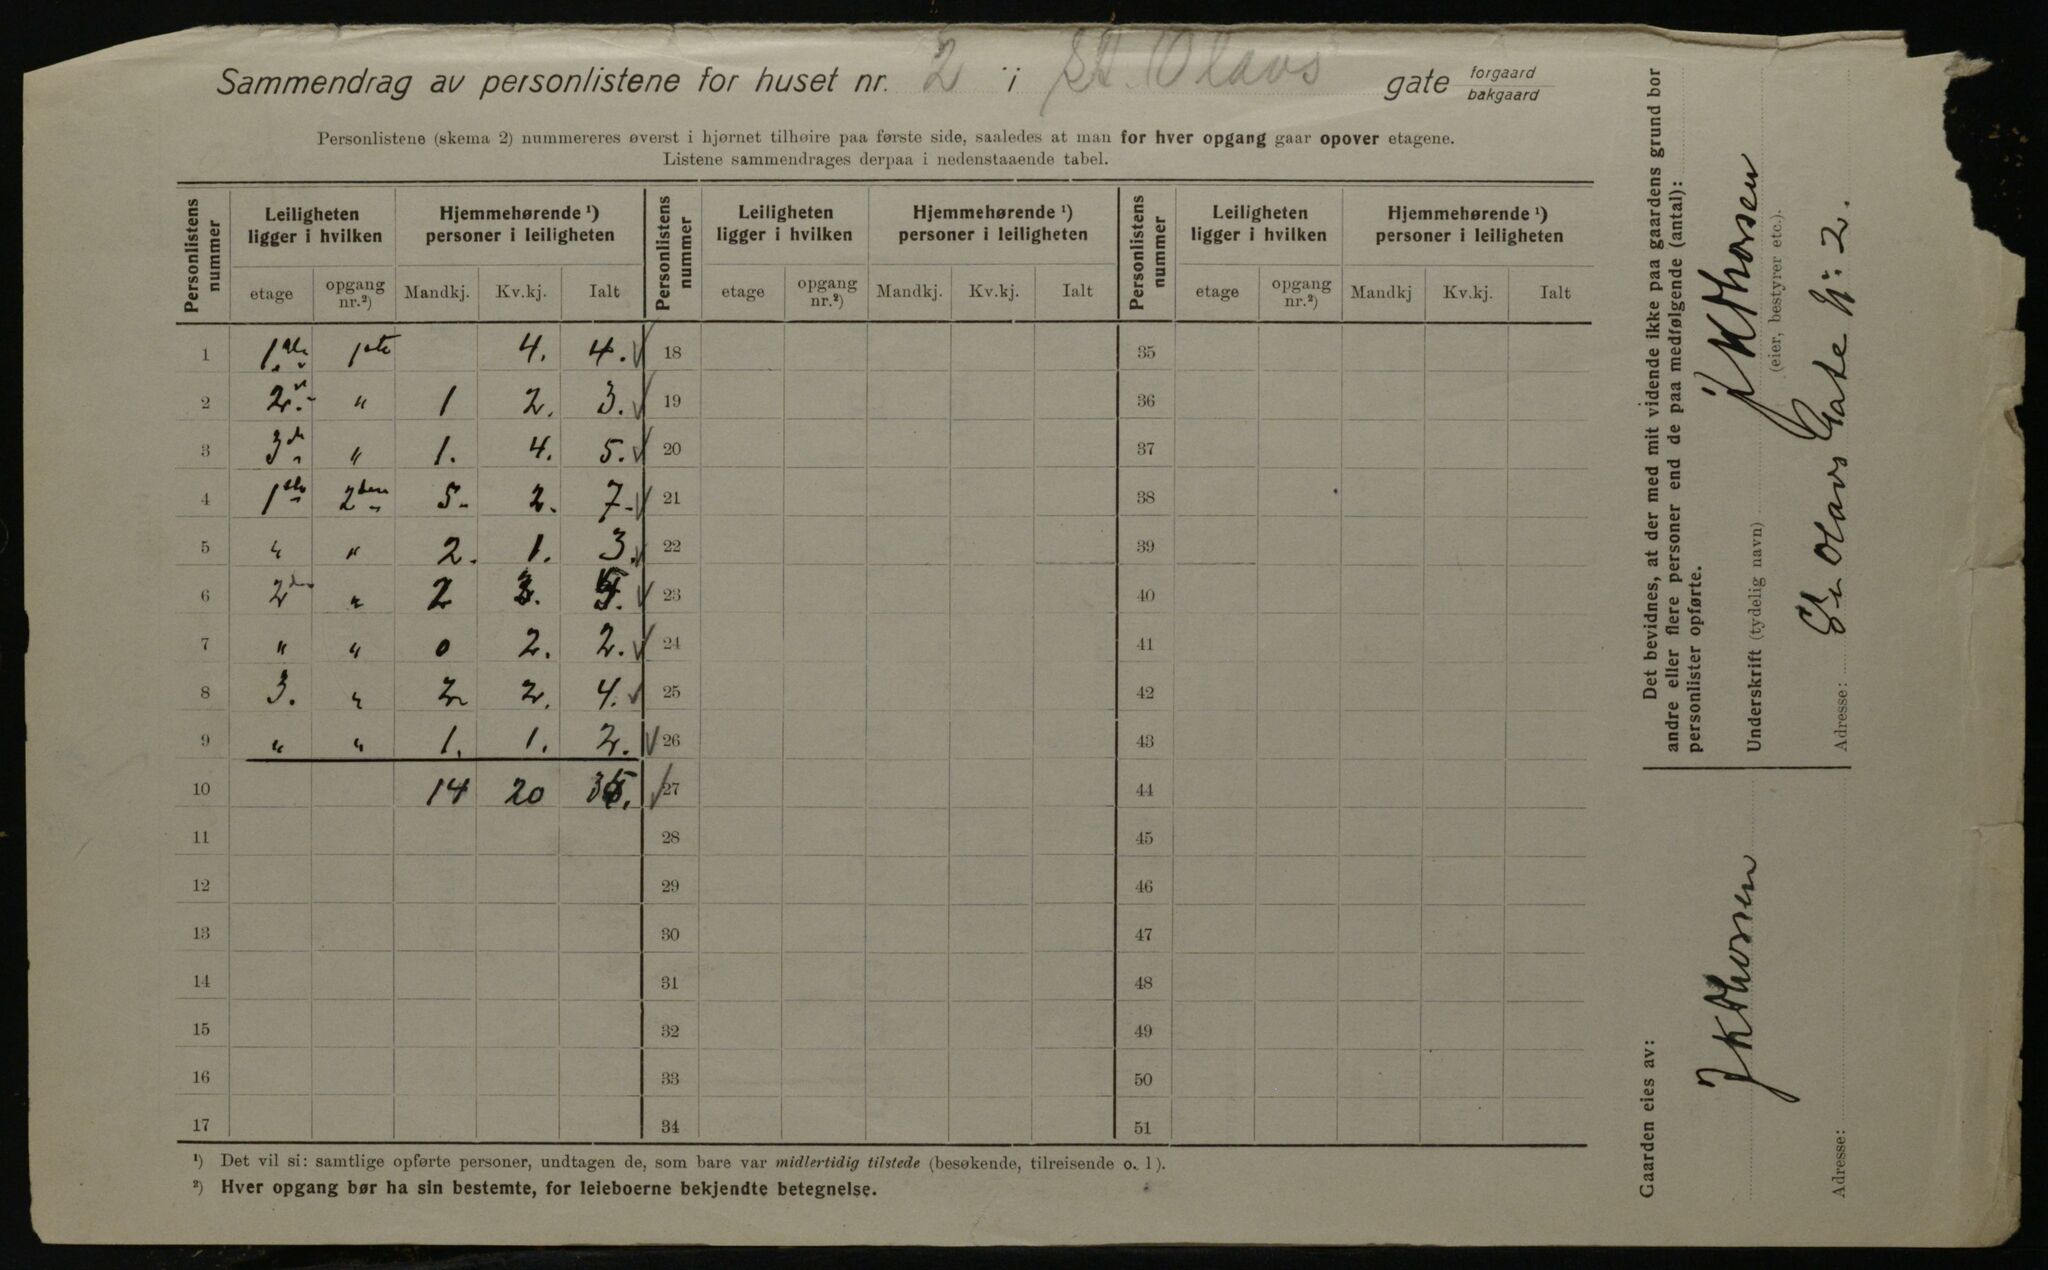 Sammendrag av personlistene for huset nr. 2 i St. Olavs gate forgaard
bakgaard
Personlistene (skema 2) nummereres øverst i hjørnet tilhøire paa første side, saaledes at man for hver opgang gaar opover etagene.
Listene sammendrages derpaa i nedenstaaende tabel.
Personlistens nummer Leiligheten ligger i hvilken Hjemmehørende ¹) personer i leiligheten Personlistens nummer Leiligheten ligger i hvilken Hjemmehørende ¹) personer i leiligheten Personlistens nummer Leiligheten ligger i hvilken Hjemmehørende ¹) personer i leiligheten
etage opgang nr.²) Mandkj. Kv.kj. Ialt etage opgang nr.²) Mandkj. Kv.kj. Ialt etage opgang nr.²) Mandkj Kv.kj. Ialt
1 1ste 1ste 4. 4. 18 35
2 2. " 1 2. 3. 19 36
3 3de " 1. 4. 5. 20 37
4 1ste 2den 5. 2. 7. 21 38
5 " " 2. 1. 3. 22 39
6 2den " 2 23 40
7 " " 0 2. 2. 24 41
8 3. " 2 2. 4. 25 42
9 " " 1. 1. 2. 26 43
10 14 20 27 44
11 28 45
12 29 46
13 30 47
14 31 48
15 32 49
16 33 50
17 34 51
¹) Det vil si: samtlige opførte personer, undtagen de, som bare var midlertidig tilstede (besøkende, tilreisende o. l).
²) Hver opgang bør ha sin bestemte, for leieboerne bekjendte betegnelse.
Det bevidnes, at der med mit vidende ikke paa gaardens grund bor
andre eller flere personer end de paa medfølgende (antal):
personlister opførte.
Underskrift (tydelig navn) J K Thorsen
(eier, bestyrer etc.).
Adresse: St. Olavs Gate N: 2.
Gaarden eies av:
J K Thorsen
Adresse: